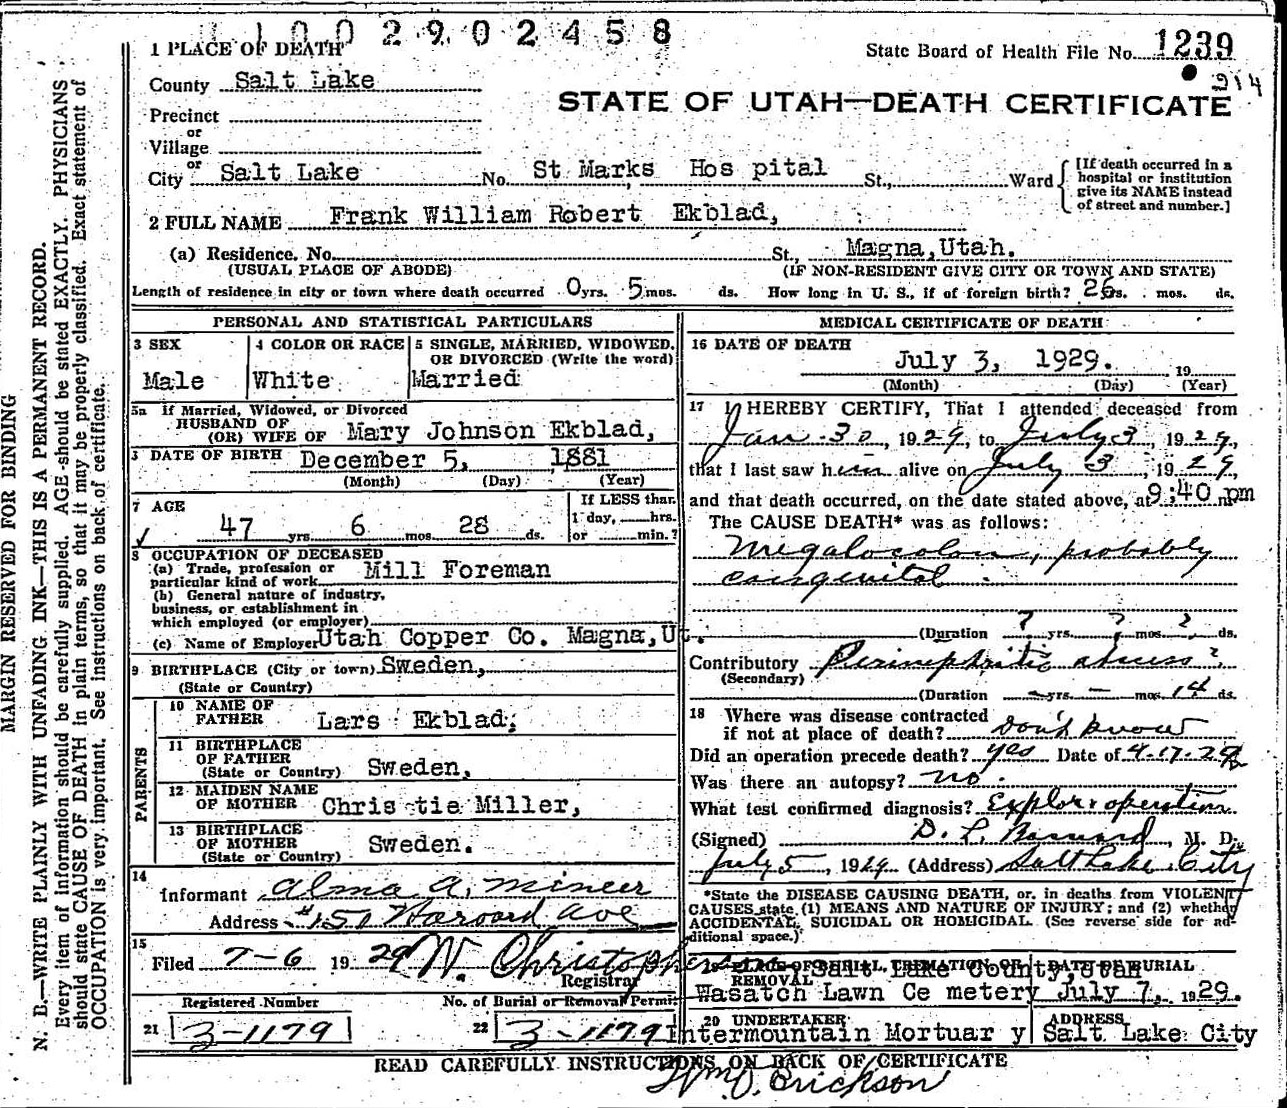 1002902458
1 PLACE OF DEATH
State Board of Health File No. 1239
County Salt Lake
914
STATE OF UTAH—DEATH CERTIFICATE
Precinct
or
Village
or
City Salt Lake No. St Marks Hos pital St., Ward
[If death occurred in a
hospital or institution
give its NAME instead
of street and number.]
2 FULL NAME Frank William Robert Ekblad,
(a) Residence. No. St., Magna, Utah.
(USUAL PLACE OF ABODE) (IF NON-RESIDENT GIVE CITY OR TOWN AND STATE)
Length of residence in city or town where death occurred 0 yrs. 5 mos. ds. How long in U. S., if of foreign birth? 26 yrs. mos. ds.
PERSONAL AND STATISTICAL PARTICULARS
3 SEX
Male
4 COLOR OR RACE
White
5 SINGLE, MARRIED, WIDOWED,
OR DIVORCED (Write the word)
Married
5a If Married, Widowed, or Divorced
HUSBAND OF
(OR) WIFE OF Mary Johnson Ekblad,
DATE OF BIRTH December 5, 1881
(Month) (Day) (Year)
7 AGE
47 yrs. 6 mos. 28 ds.
If LESS than
1 day, hrs.
or min.?
8 OCCUPATION OF DECEASED
(a) Trade, profession or
particular kind of work Mill Foreman
(b) General nature of industry,
business, or establishment in
which employed (or employer)
(c) Name of Employer Utah Copper Co. Magna, Ut.
9 BIRTHPLACE (City or town) Sweden,
(State or Country)
PARENTS
10 NAME OF
FATHER Lars Ekblad,
11 BIRTHPLACE
OF FATHER
(State or Country) Sweden,
12 MAIDEN NAME
OF MOTHER Chris tie Miller,
13 BIRTHPLACE
OF MOTHER
(State or Country) Sweden.
14
Informant Alma A. Mineer
Address #151 Harvard Ave
15
Filed 7-6 1929 W. Christophers
Registrar
Registered Number
21 3-1179
No. of Burial or Removal Permit
22 3-1179
MEDICAL CERTIFICATE OF DEATH
16 DATE OF DEATH
July 3, 1929. 19
(Month) (Day) (Year)
17 I HEREBY CERTIFY, That I attended deceased from
Jan. 30, 1929, to July 3, 1929,
that I last saw him alive on July 3, 1929,
and that death occurred, on the date stated above, at 9:40 pm
The CAUSE DEATH* was as follows:
Megalocolon, probably
congenital.
(Duration ? yrs. ? mos. ? ds.
Contributory Perinephritic abscess?
(Secondary)
(Duration – yrs. – mos. 14 ds.
18 Where was disease contracted
if not at place of death? Don't know
Did an operation precede death? yes Date of 4-17-29
Was there an autopsy? no.
What test confirmed diagnosis? Explor. operation
(Signed) D. L. M. D.
July 5, 1929 (Address) Salt Lake City
*State the DISEASE CAUSING DEATH, or, in deaths from VIOLENT
CAUSES state (1) MEANS AND NATURE OF INJURY; and (2) whether
ACCIDENTAL, SUICIDAL OR HOMICIDAL. (See reverse side for ad-
ditional space.)
19 PLACE OF BURIAL, CREMATION OR
REMOVAL
DATE OF BURIAL
Salt Lake County, Utah
Wasatch Lawn Ce metery July 7, 1929.
20 UNDERTAKER ADDRESS
Intermountain Mortuar y Salt Lake City
READ CAREFULLY INSTRUCTIONS ON BACK OF CERTIFICATE
Wm. D. Erickson
MARGIN RESERVED FOR BINDING
N. B.—WRITE PLAINLY WITH UNFADING INK—THIS IS A PERMANENT RECORD.
Every item of information should be carefully supplied. AGE should be stated EXACTLY. PHYSICIANS
should state CAUSE OF DEATH in plain terms, so that it may be properly classified. Exact statement of
OCCUPATION is very important. See instructions on back of certificate.